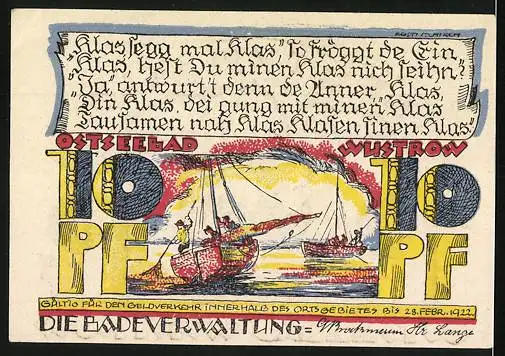 "Klas segg mal Klas" so fröggt de Ein
"Klas, hest Du minen Klas nich seihn?"
"Ja" antwurt't denn de Anner, "Klas,
Din Klas, dei gung mit minen Klas
Tausamen nah Klas Klasen sinen Klas."
OSTSEEBAD WUSTROW
10 10
PF PF
GÜLTIG FÜR DEN GELDVERKEHR INNERHALB DES ORTSGEBIETES BIS 28. FEBR. 1922.
DIE BADEVERWALTUNG=
Lange